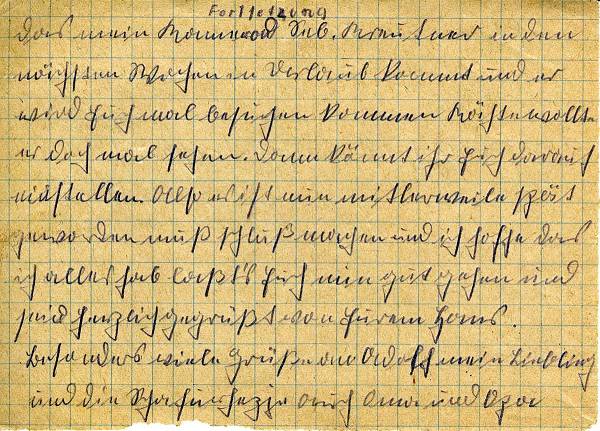 Fortsetzung
das mein Kamerad Seb. Kreutner in den
nächsten Wochen in Verlaub kommt und er
wird Euch mal besuchen kommen Käthe wollte
er doch mal sehen. Dann könnt ihr Euch darauf
einstellen. Also es ist nun mitlerweile spät
geworden muß schluß machen und ich hoffe das
ich alles hab laßt's Euch nun gut gehen und
seid herzlich gegrüßt von Eurem Hans.
besonders viele Grüße an Adolf mein Liebling
und die auch Oma und Opa